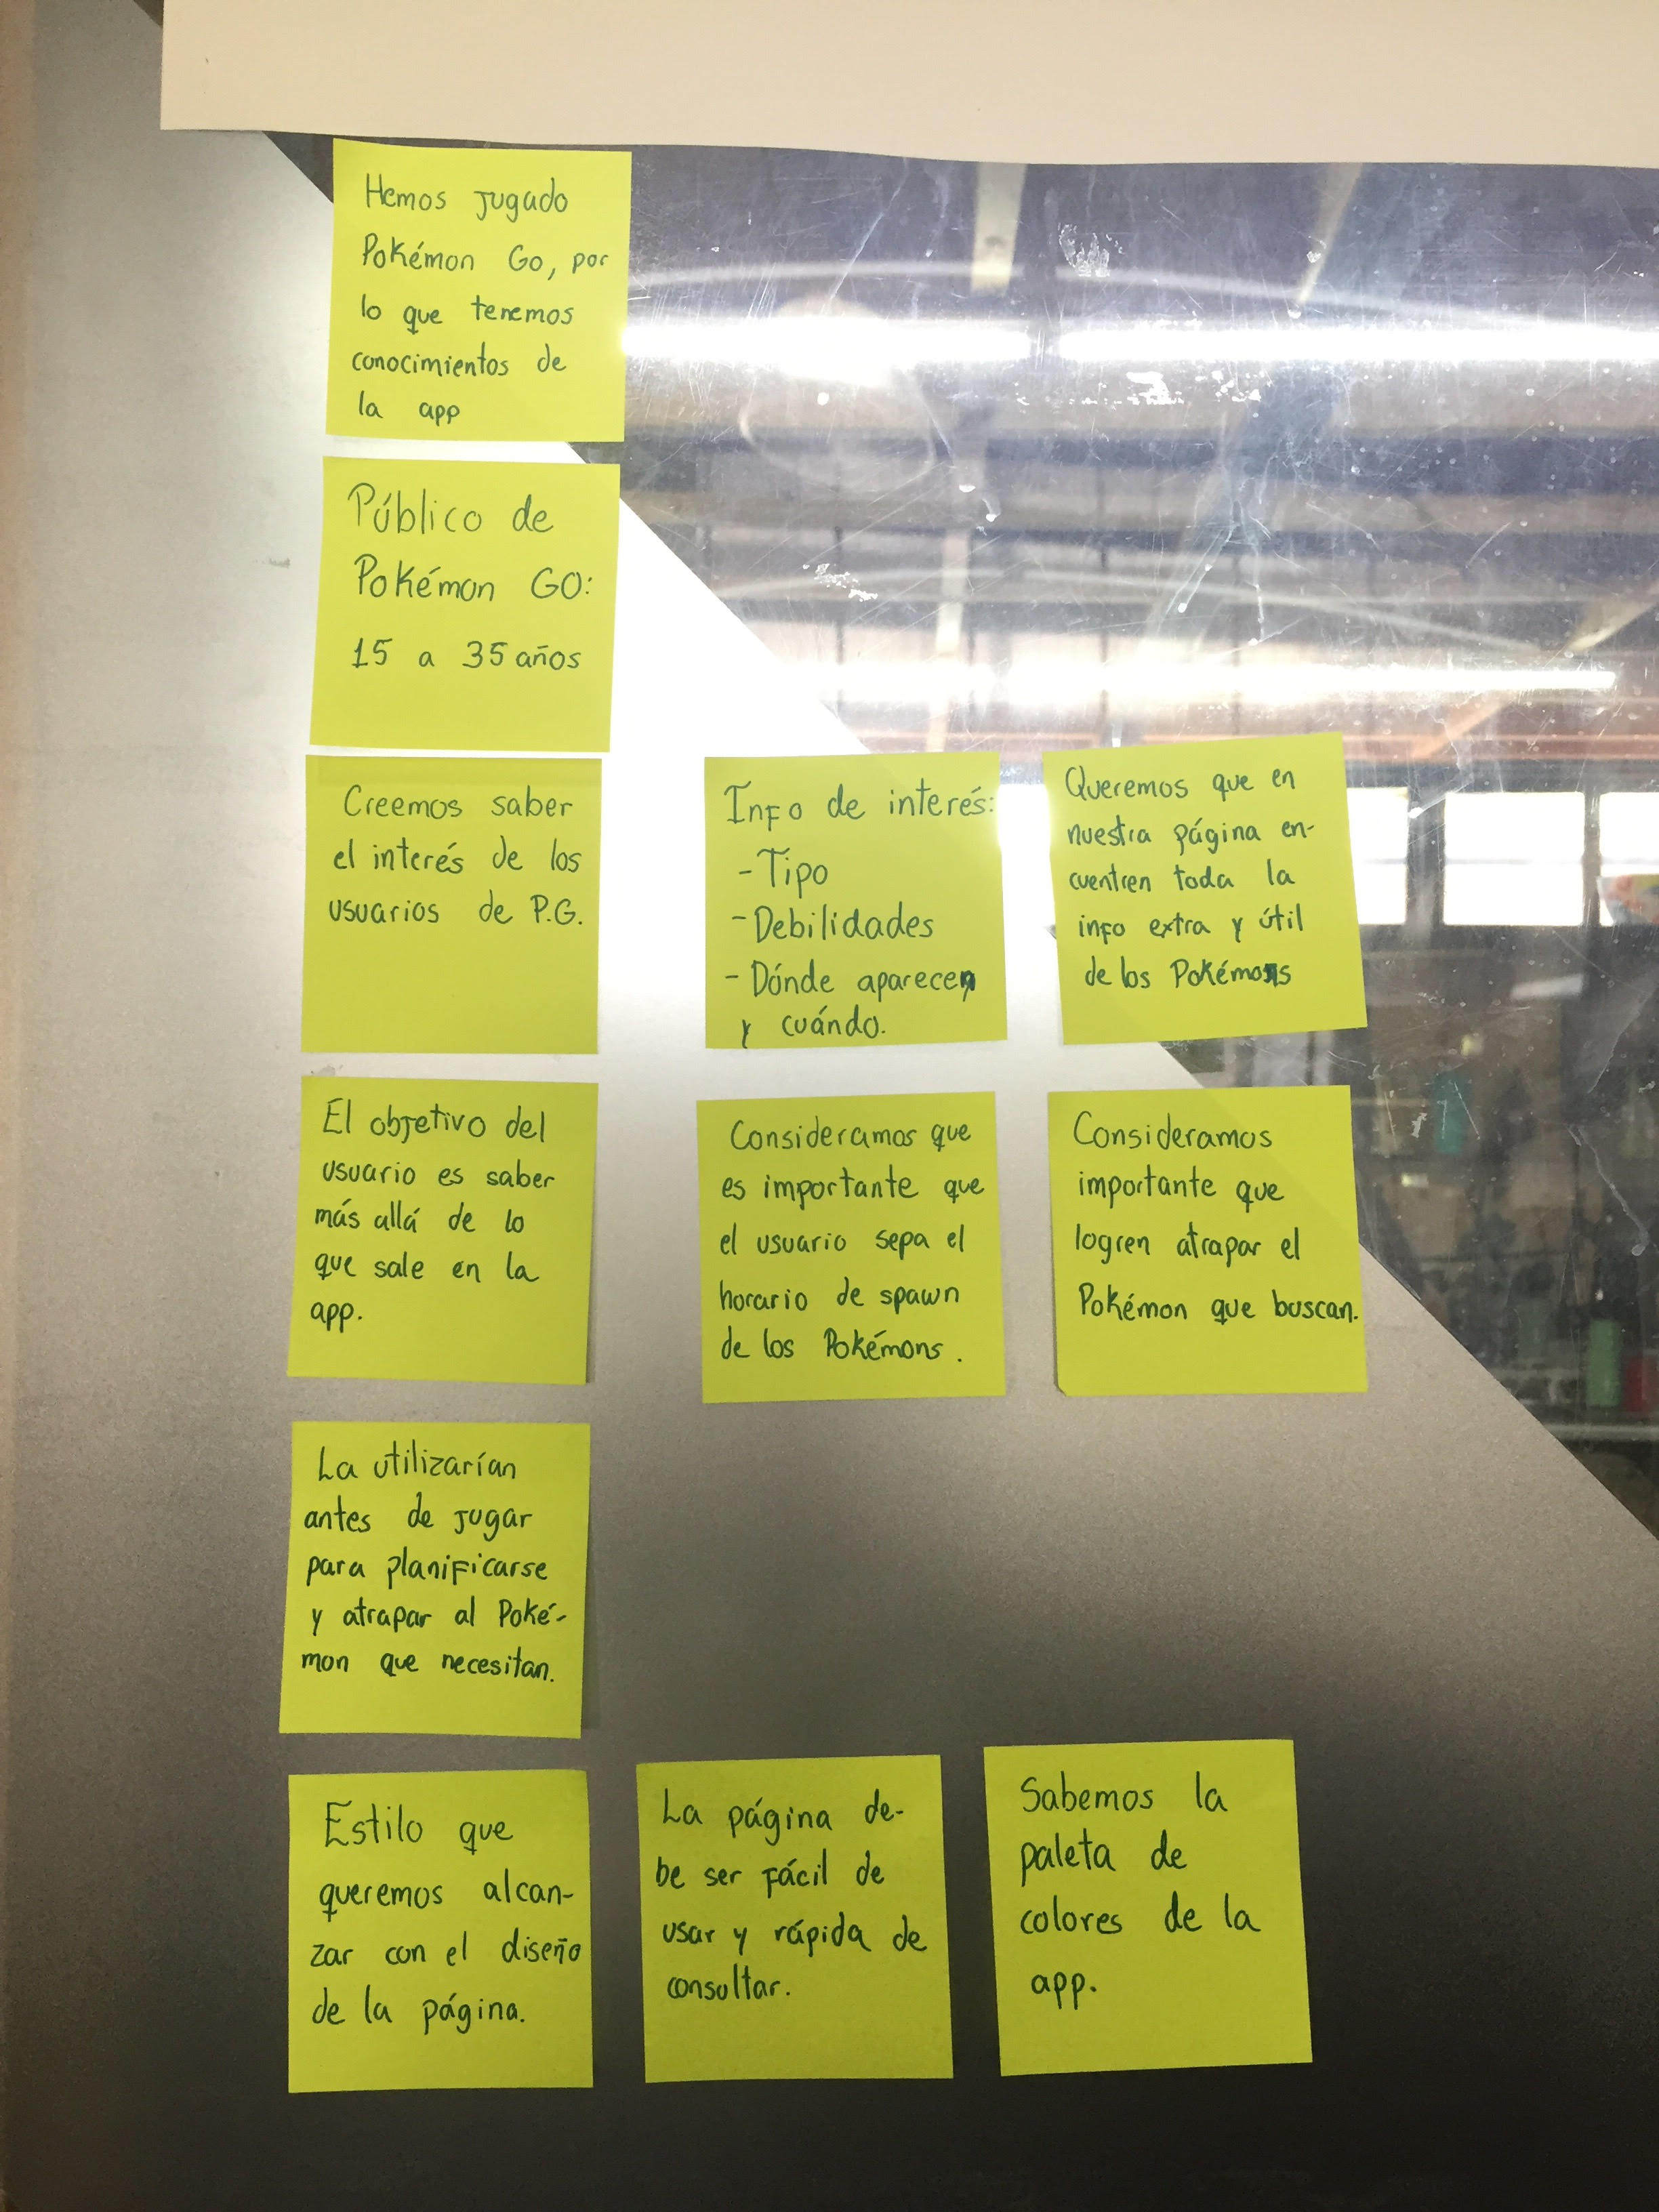 Hemos jugado
Pokémon Go, por
lo que tenemos
conocimientos de
la app
Público de
Pokémon GO:
15 a 35 años
Creemos saber
el interés de los
usuarios de P.G.
Info de interés:
- Tipo
- Debilidades
- Dónde aparecen
y cuándo.
Queremos que en
nuestra página en-
cuentren toda la
info extra y útil
de los Pokémons
El objetivo del
usuario es saber
más allá de lo
que sale en la
app.
Consideramos que
es importante que
el usuario sepa el
horario de spawn
de los Pokémons.
Consideramos
importante que
logren atrapar el
Pokémon que buscan.
La utilizarían
antes de jugar
para planificarse
y atrapar al Poké-
mon que necesitan.
Estilo que
queremos alcan-
zar con el diseño
de la página.
La página de-
be ser fácil de
usar y rápida de
consultar.
Sabemos la
paleta de
colores de la
app.